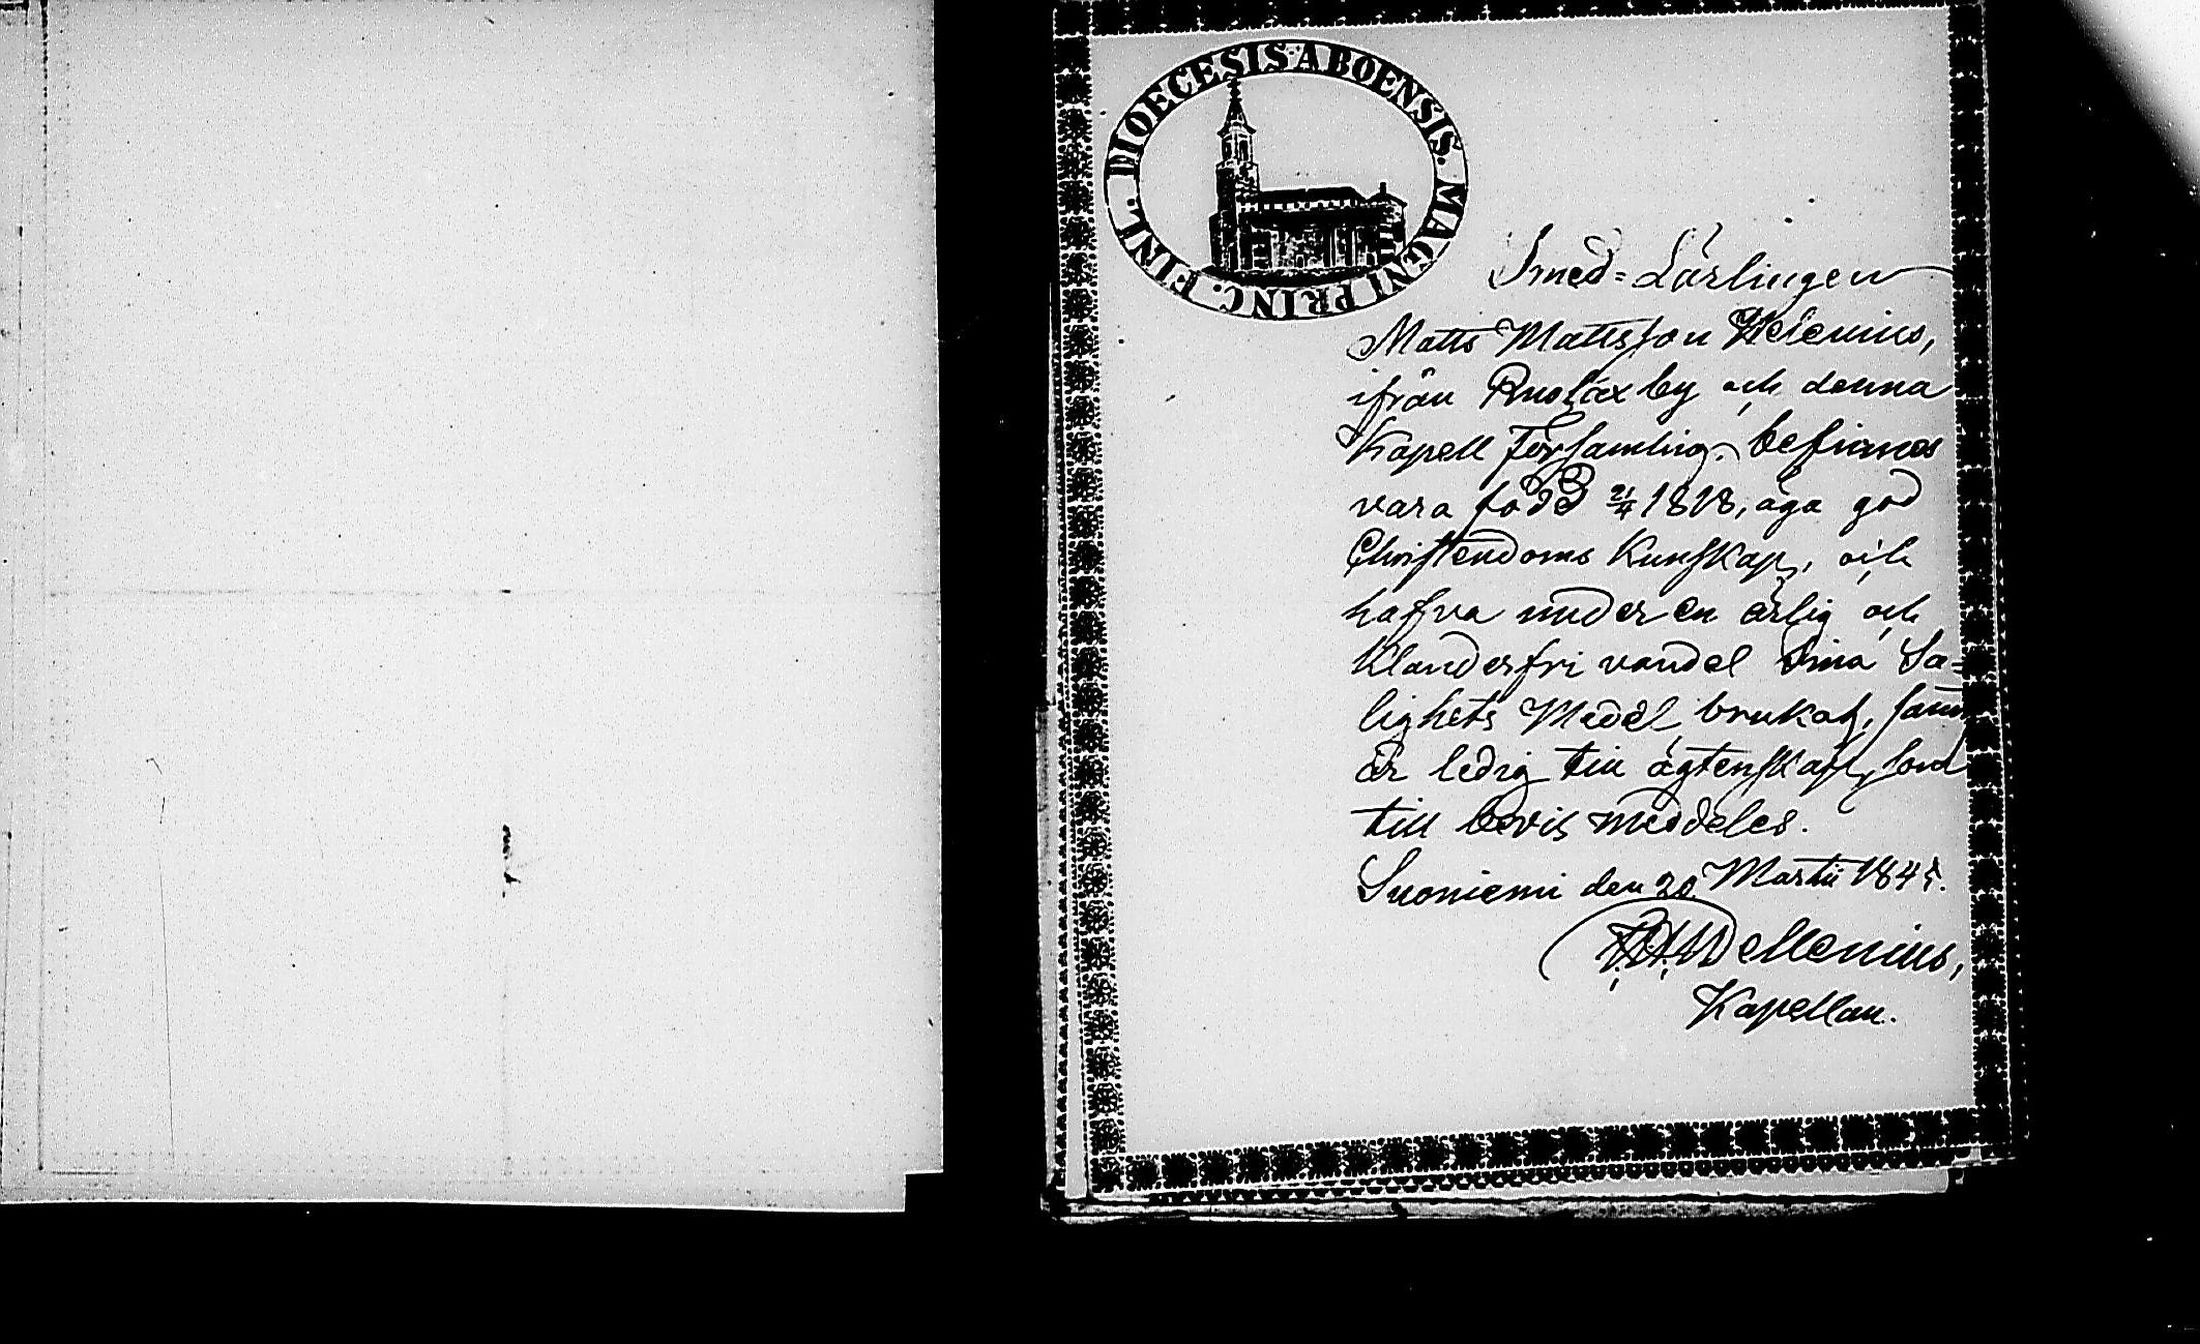 DIOECESIS ABOENSIS. MAGNI PRINC. FINL.
Smed=Lärlingen
Matts Mattsson Helenius,
ifrån by och denna
Kapell Församling, befinnes
vara född 21/4 1818, äga god
Christendoms Kunskap, och
hafva under en ärlig och
Klanderfri vandel Sina Sa=
lighets Medel brukat, samt
är ledig till ägtenskap, som
till bevis meddeles.
Suoniemi den 20 Martii 1845.
Wellenius,
Kapellan.